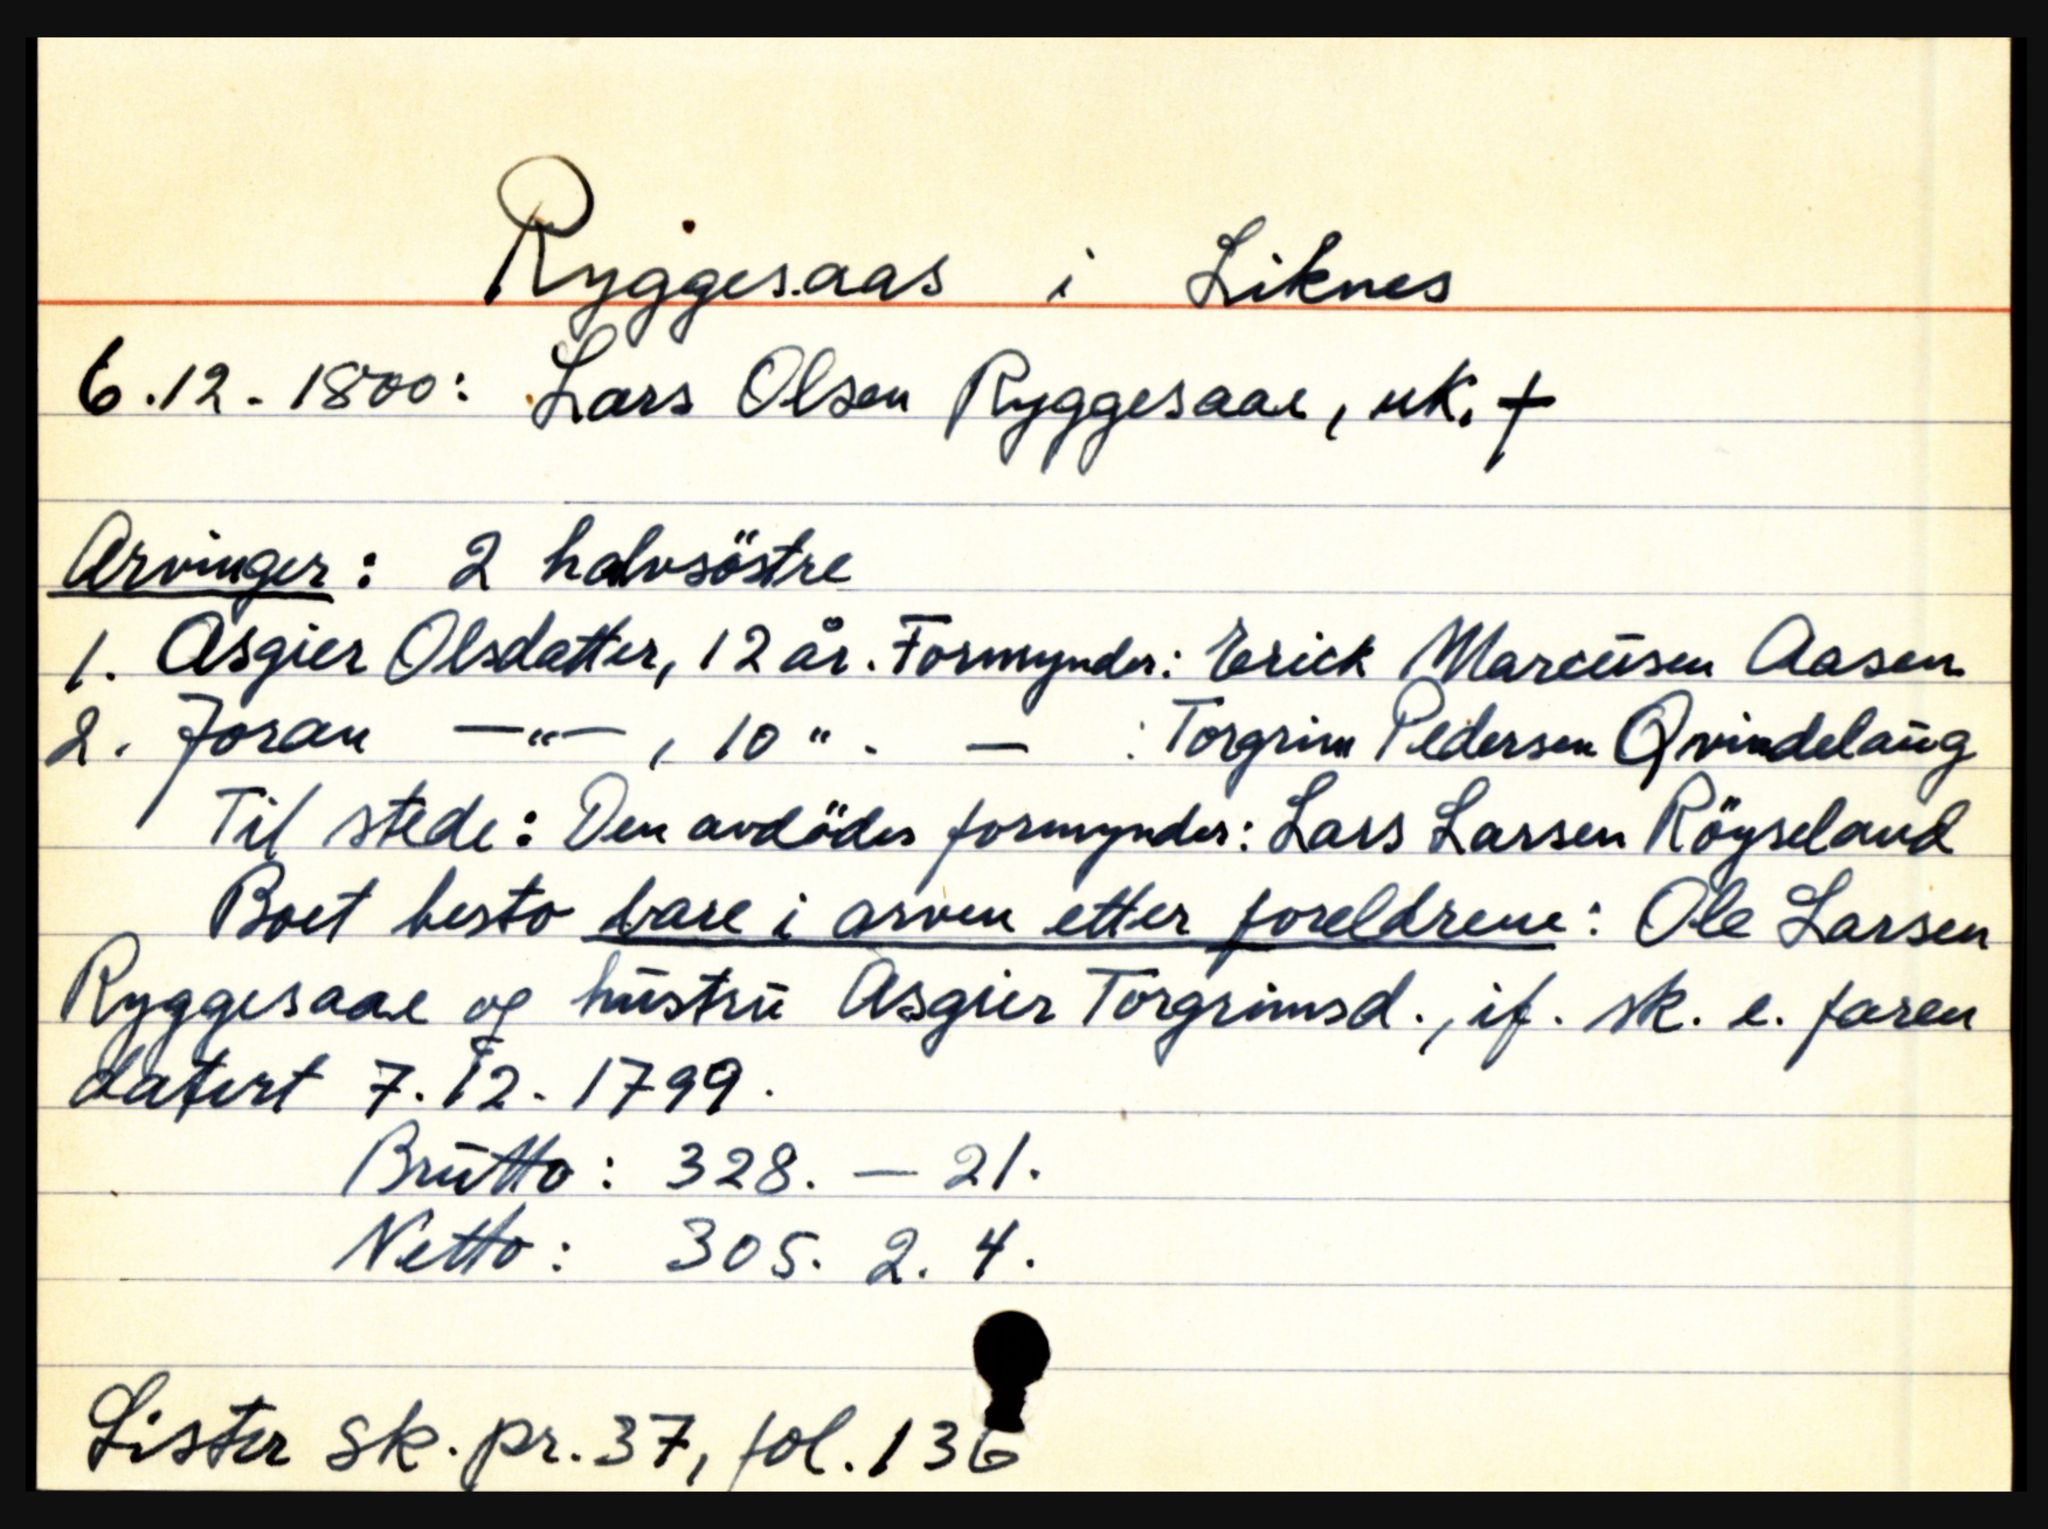 Ryggesaas i Liknes
6.12.-1800: Lars Olsen Ryggesaae, uk. †
Arvinger: 2 halvsöstre
1. Asgier Olsdatter, 12 år. Formynder: Erick Marcusen Aasen
2. Joran —"— , 10 " . — : Torgrim Pedersen Qvindelaug
Til stede: Den avdödes formynder: Lars Larsen Röyseland
Boet besto bare i arven etter foreldrene: Ole Larsen
Ryggesaae og hustru Asgier Torgrimsd., jf. sk. e. faren
datert 7.12.-1799.
Brutto: 328. — 21.
Netto: 305. 2. 4.
Lister sk. pr. 37, fol. 136